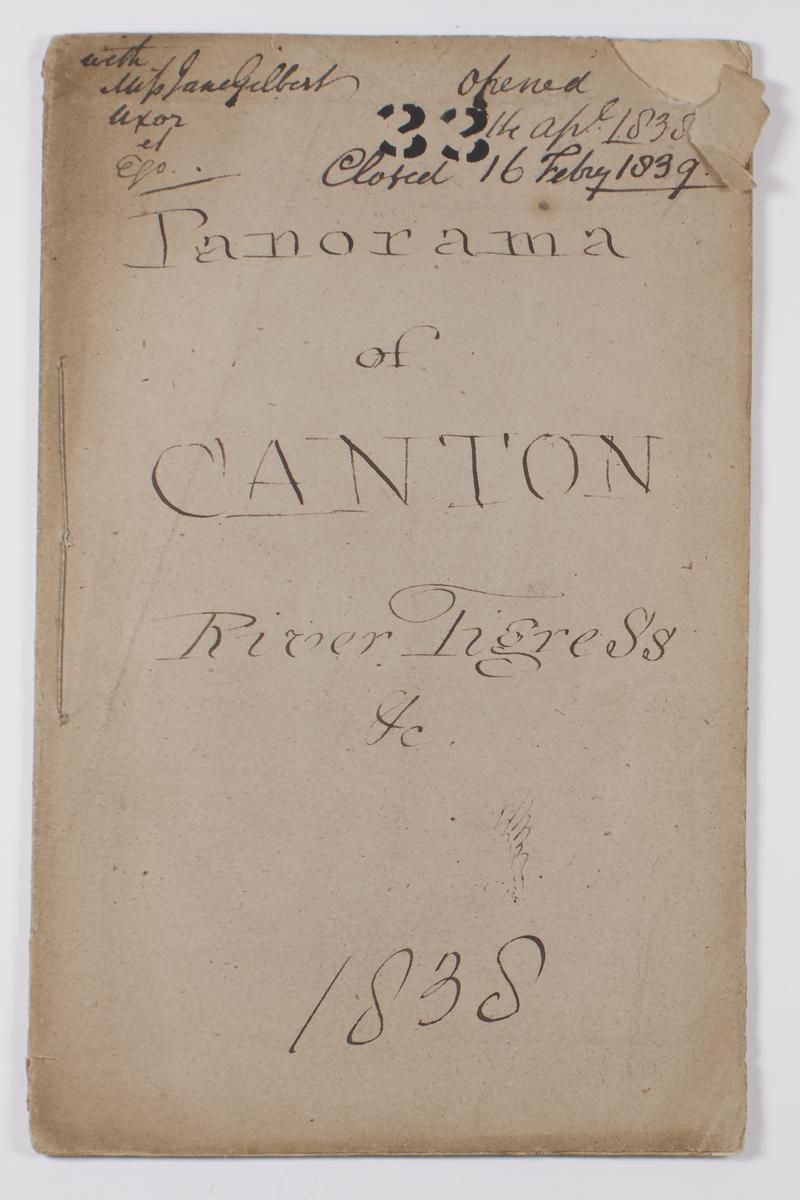 with
Miss Jane Gilbert
Uxor
et
Ego.
opened
33 apl. 1838
Closed 16 Febry 1839.
Panorama
of
CANTON
River Tigress
&c.
1838